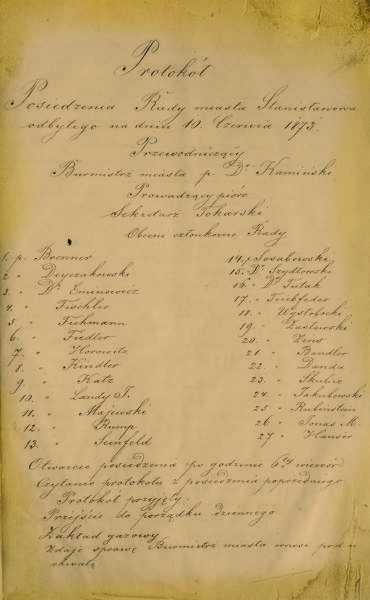 Protokół
Posiedzenia Rady miasta Stanisławowa
odbytego na dniu 10. Czerwca 1873
Przewodniczący
Burmistrz miasta p. Dr Kamiński
Prowadzący pióro
Sekretarz Tokarski
Obecni członkowie Rady
1. p. Brenner
2 " Dryczakowski
3 " Dr Eminowicz
4 " Fischler
5 " Fuhrmann
6 " Fiedler
7. " Horowitz
8 " Kindler
9 " Katz
10. " Landy T.
11. " Majewski
12. " Rump
13. " Seinfeld
14. p. Sosabowski
15. Dr Szydłowski
16. " Dr Tutak
17. "
18. " Wysłobocki
19. " Zasławski
20. " Zins
21. " Bandler
22. " Danda
23. " Skulicz
24. " Jakubowski
25 " Rubinstein
26 " Jonas M.
27 "
Otwarcie posiedzenia po godzinie 6tej wieczór
Czytanie protokołu z posiedzenia poprzedniego
Protokół przyjęty.
Przejście do porządku dziennego
Zakład gazowy
Zdaje sprawę Burmistrz miasta wnosi pod u
chwałę